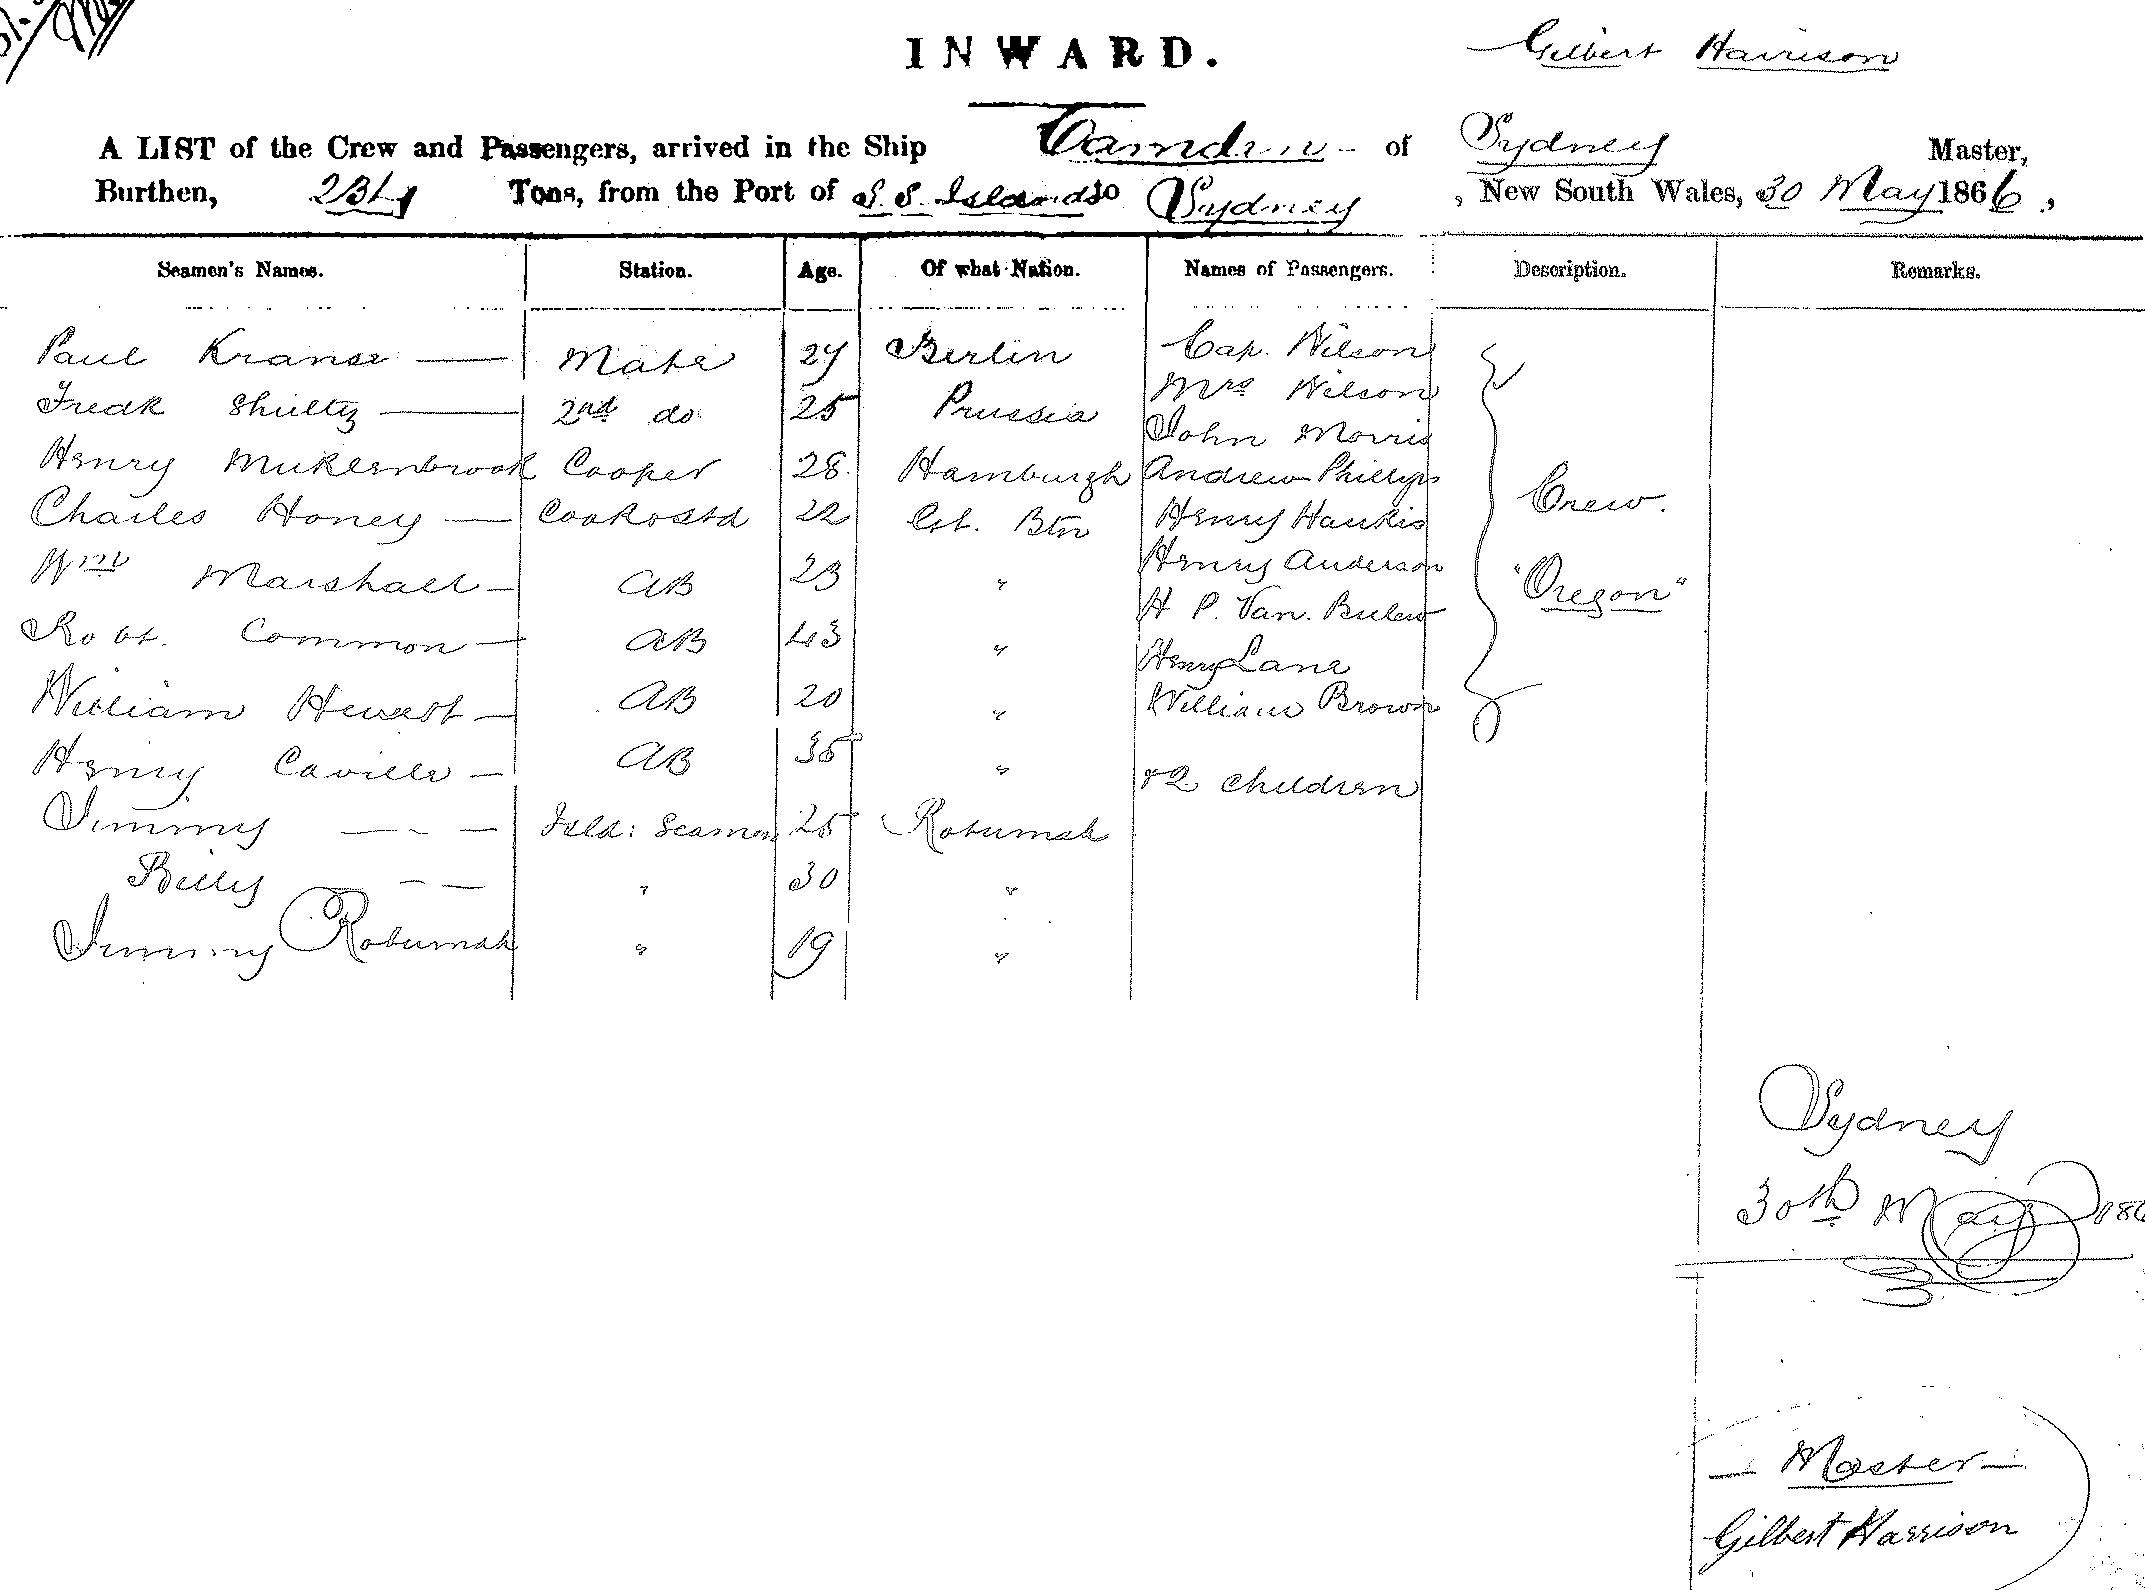 INWARD.
Gilbert Harrison
A LIST of the Crew and Passengers, arrived in the Ship Camden of Sydney Master,
Burthen, 234 Tons, from the Port of S. S. Islands to Sydney, New South Wales, 30 May 1866,
Seamen's Names. Station. Age. Of what Nation. Names of Passengers. Description. Remarks.
Paul Kranse Mate 27 Berlin Cap. Wilson
Mrs Wilson
Fredk Shultz 2nd do 25 Prussia John Morris
Henry Muklenbrook Cooper 28 Hamburgh Andrew Phillips Crew.
Charles Honey Cook & Std 22 Gt. Btn Henry Hankis
Henry Anderson
Wm Marshall AB 23 " H P. Van. Bulew "Oregon"
Robt. Common AB 43 " Henry Lane
William Hewett AB 20 " William Brown
Henry Caville AB 35 " & 2 Children
Jimmy Isld: Seamen 25 Rotumah
Billy " 30 "
Jimmy Rotumah " 19 "
Sydney
30th May 186
Master
Gilbert Harrison